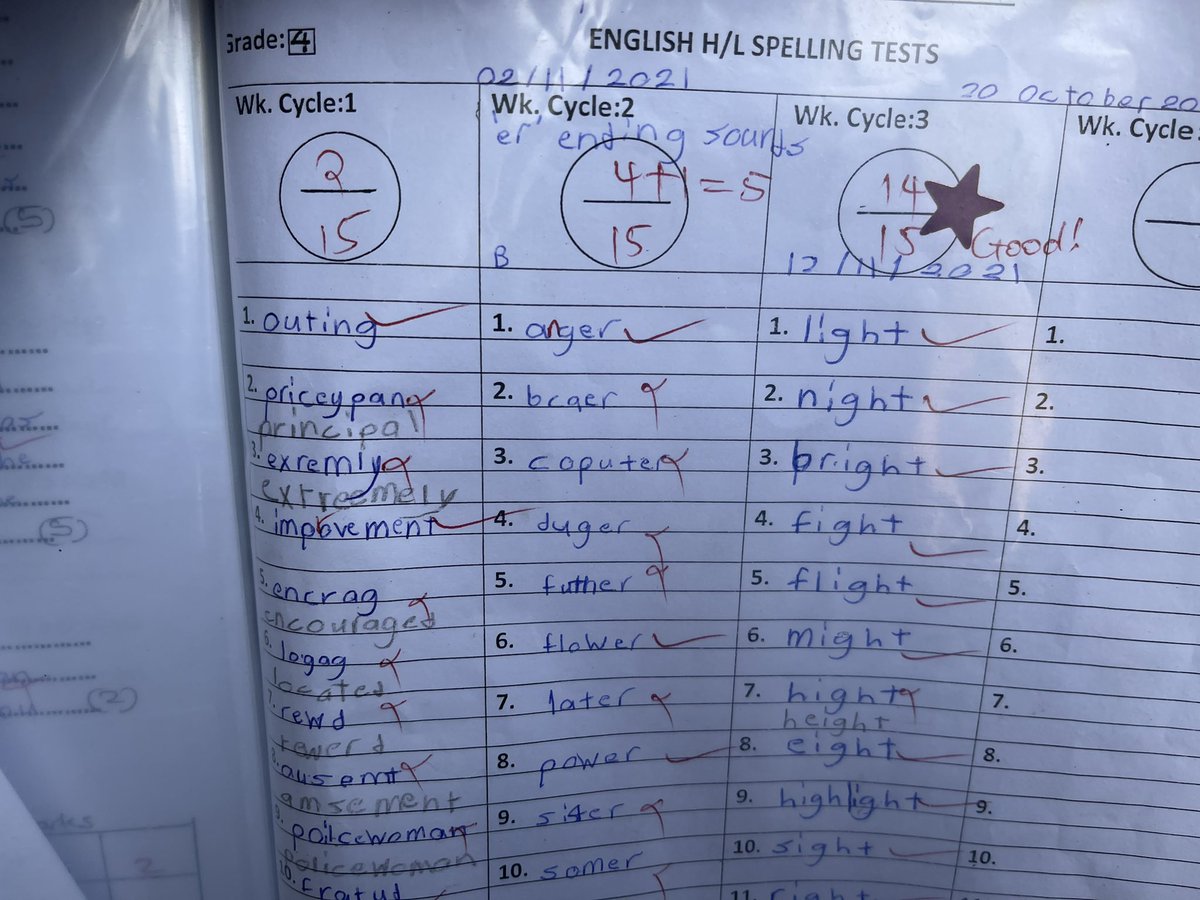 Grade: 4
ENGLISH H/L SPELLING TESTS
02/11/2021
20 October 20
Wk. Cycle:1
2
15
1. outing
2. priceypan
principal
3. exremly
extreemely
4. impovement
5. encrag
encouraged
6. logag
located
7. rewd
rewerd
8. ausemt
amsement
9. poilcewoman
policewoman
10. fratud
Wk. Cycle:2
'er' ending sounds
4+1 = 5
15
B
1. anger
2. bcaer
3. coputer
4. duger
5. futher
6. flower
7. later
8. power
9. sister
10. somer
Wk. Cycle:3
14
15
Good!
12/11/2021
1. light
2. night
3. bright
4. fight
5. flight
6. might
7. hight
height
8. eight
9. highlight
10. sight
11. right
Wk. Cycle
1.
2.
3.
4.
5.
6.
7.
8.
9.
10.
(5)
(5)
(2)
2